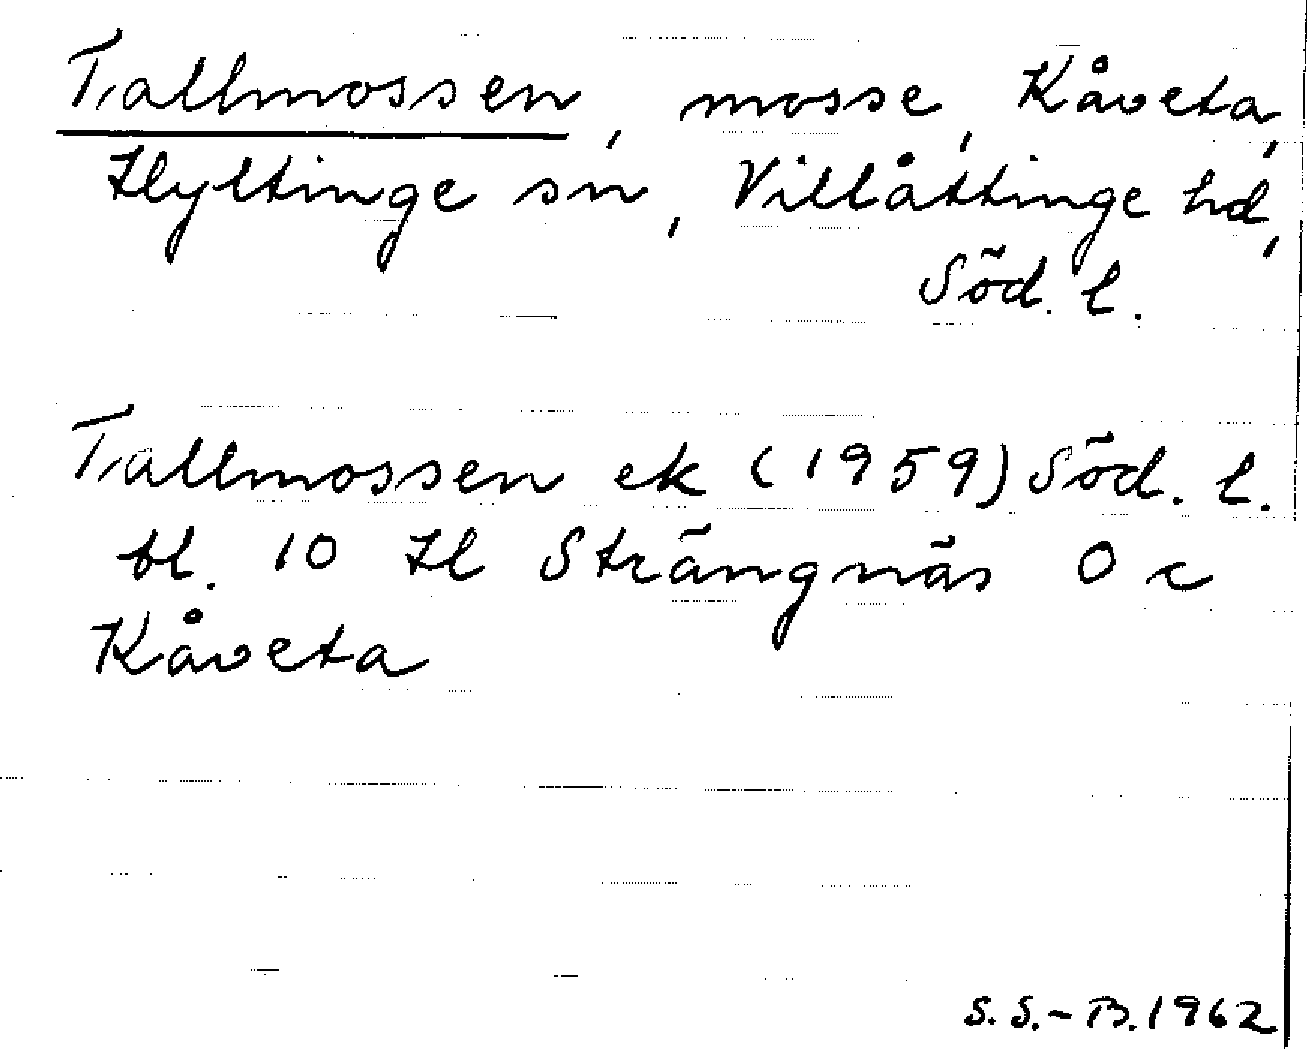 Tallmossen, mosse, Kåveta,
Hyltinge sn, Villåttinge hd,
Söd. l.
Tallmossen ek (1959) Söd. l.
bl. 10 H Strängnäs O c
Kåveta
S.S.-B. 1962